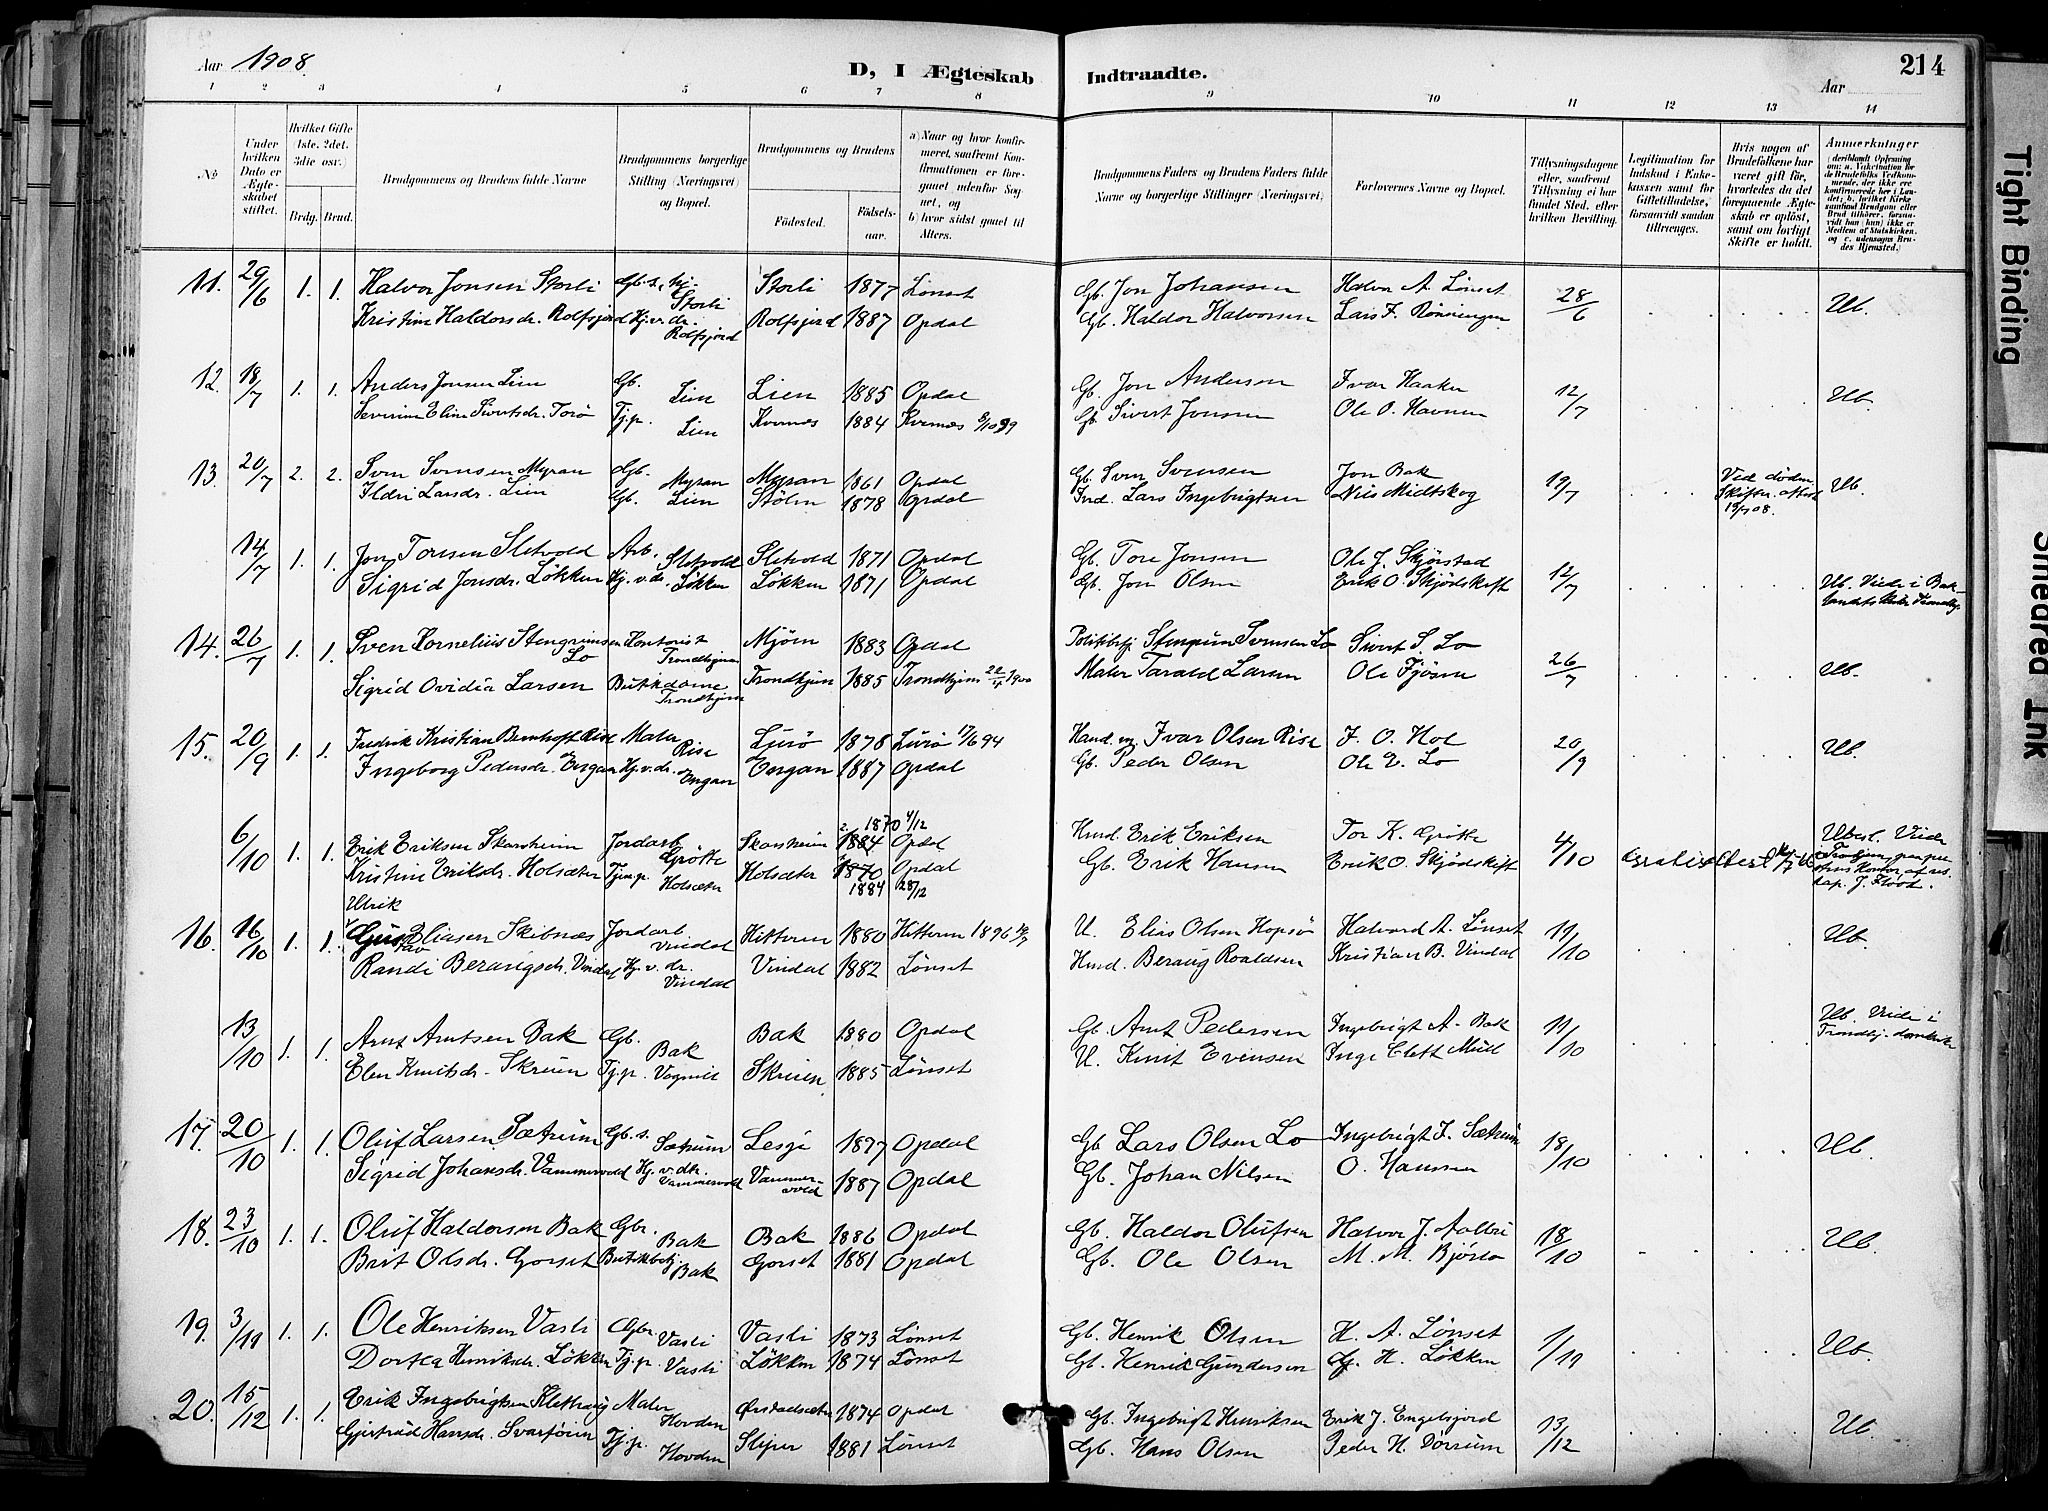 Aar 1908.
D, I Ægteskab Indtraadte.
214
Aar
1 2 3 4 5 6 7 8 9 10 11 12 13 14
No
Under hvilken Dato er Ægteskabet stiftet.
Hvilket Gifte (1ste, 2det, 3die osv.)
Brdg. Brud.
Brudgommens og Brudens fulde Navne
Brudgommens borgerlige Stilling (Næringsvei) og Bopæl.
Brudgommens og Brudens
Födested. Födselsaar.
a) Naar og hvor konfirmeret, saafremt Konfirmationen er foregaaet udenfor Sognet, og
b) hvor sidst gaaet til Alters.
Brudgommens Faders og Brudens Faders fulde Navne og borgerlige Stillinger (Næringsvei)
Forlovernes Navne og Bopæl.
Tillysningsdagene eller, saafremt Tillysning ei har fundet Sted, efter hvilken Bevilling.
Legitimation for Indskud i Enkekassen samt for Giftetilladelse, forsaavidt saadan tiltrænges.
Hvis nogen af Brudefolkene har været gift før, hvorledes da det foregaaende Ægteskab er opløst, samt om lovligt Skifte er holdt.
Anmærkninger
11. 29/6 1. 1. Halvor Jonsen Storli Gb.s., Storli Storli 1877 Lönset Gb. Jon Johansen Halvor A. Lönset 28/6 Ub.
Kristine Haldorsdr. Rolfsjord Hj.v.dr. Rolfsjord Rolfsjord 1887 Opdal Gb. Haldor Halvorsen Lars F. Rönningen
12. 18/7 1. 1. Anders Jonsen Lien Gb. Lien Lien 1885 Opdal Gb. Jon Andersen Ivar Haaker 12/7 Ub.
Severine Eline Sivertsdr. Torö Tj.p. Lien Kvernes 1884 Kvernes 8/10 99 Gb. Sivert Jonsen Ole O. Havnen
13. 20/7 2. 2. Sven Svensen Myran Gb. Myran Myran 1861 Opdal Gb. Sven Svensen Jon Bak 19/7 Ved döden. Skiftesattest 19/7 08. Ub.
Ildri Larsdr. Lien Gb. Lien Stölen 1878 Opdal Ind. Lars Ingebrigtsen Nils Midtskog
14/7 1. 1. Jon Toresen Sletvold Arb. Sletvold Sletvold 1871 Opdal Gb. Tore Jonsen Ole J. Skjörstad 12/7
Sigrid Jonsdr. Lökken Hj.v.dr. Lökken Lökken 1871 Opdal Gb. Jon Olsen Erik O. Skjödskift Ub. Viede i Baklandets Kirke Trondhj.
14. 26/7 1. 1. Sven Kornelius Stengrimsen Lo Kontorist Trondhjem Mjöen 1883 Opdal Politibetj. Stengrim Svensen Lo Sivert S. Lo 26/7 Ub.
Sigrid Ovidia Larsen Butikdame Trondhjem Trondhjem 1885 Trondhjem 22/4 1900 Maler Tarald Larsen Ole Fjösne
15. 20/9 1. 1. Fredrik Kristian Bernhoft Rise Maler Rise Lurö 1878 Lurö 17/6 94 Hand.m. Ivar Olsen Rise J. O. Hol 20/9 Ub.
Ingeborg Pedersdr. Engan Hj.v.dr. Engan Engan 1887 Opdal Gb. Peder Olsen Ole E. Lo
6/10 1. 1. Erik Eriksen Skarsheim Jordarb. Grötte Skarsheim 1870 4/12 1884 Opdal Husd. Erik Eriksen Tor K. Grötte 4/10
Kristine Eriksdr. Holsæter Tjp. Holsæter Holsæter 1870 1884 28/12 Opdal Gb. Erik Hansen Erik O. Skjödskift
16. 16/10 1. 1. Ulrik Gustav Eliasen Skibnæs Jordarb. Vindal Hitteren 1880 Hitteren 1896 U. Elias Olsen Hopsö Halvard A. Lönset 11/10 Ub.
Randi Beraugsdr. Vindal Hj.v.dr. Vindal Vindal 1882 Lönset Husd. Beraug Roaldsen Kristian B. Vindal
13/10 1. 1. Arnt Arntsen Bak Gb. Bak Bak 1880 Opdal Gb. Arnt Pedersen Ingebrigt A. Bak 11/10 Ub. Viede i Trondhj. domkirke
Elen Knutsdr. Skruen Tj.p. Vognill Skruen 1885 Lönset U. Knut Evensen Inge Clett Müll
17. 20/10 1. 1. Oluf Larsen Sætrum Gb.s. Sætrum Lesje 1877 Opdal Gb. Lars Olsen Lo Ingebrigt J. Sætrum 18/10 Ub.
Sigrid Johansdr. Vammervold Hj.v.dtr. Vammervold Vammervold 1887 Opdal Gb. Johan Nilsen O. Hanssen
18. 23/10 1. 1. Oluf Haldorsen Bak Gbr. Bak Bak 1886 Opdal Gb. Haldor Olufsen Halvor J. Aalbu 18/10 Ub.
Brit Olsdr. Gorset Butikbetj. Bak Gorset 1881 Opdal Gb. Ole Olsen M. M. Björlo
19. 3/11 1. 1. Ole Henriksen Vasli Gbr. Vasli Vasli 1873 Lönset Gb. Henrik Olsen H. A. Lönset 1/11 Ub.
Dortea Henriksdr. Lökken Tj.p. Vasli Lökken 1874 Lönset Gb. Henrik Gundersen G. H. Lökken
20. 15/12 1. 1. Erik Ingebrigtsen Klethaug Maler Hovden 1874 Opdal Gb. Ingebrigt Henriksen Erik J. Engelsjord 13/12 Ub.
Gjertrud Hansdr. Svarföien Tj.p. Hovden Sliper 1881 Lönset Gb. Hans Olsen Peder H. Dörrum
Tight Binding
Smeared Ink